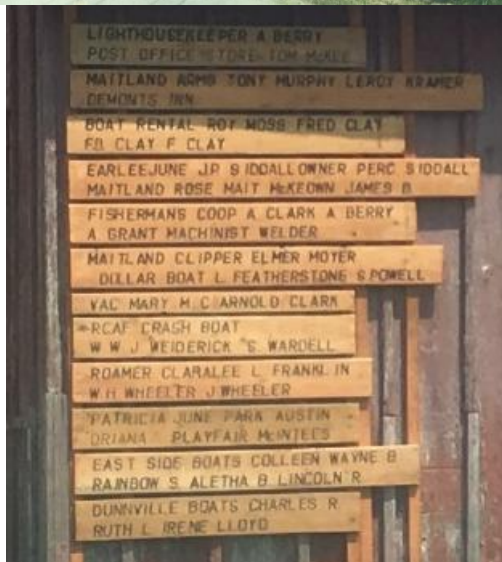 LIGHTHOUSEKEEPER A BERRY
POST OFFICE STORE TOM McKEE
MAITLAND ARMS TONY MURPHY LEROY KRAMER
DEMONTS INN
BOAT RENTAL ROY MOSS FRED CLAY
F.B. CLAY F CLAY
EARLEEJUNE J.P. SIDDALL OWNER PERC SIDDALL
MAITLAND ROSE MAIT McKEOWN JAMES B
FISHERMANS COOP A CLARK A BERRY
A GRANT MACHINIST WELDER
MAITLAND CLIPPER ELMER MOYER
DOLLAR BOAT L FEATHERSTONE S POWELL
VAC MARY M C ARNOLD CLARK
RCAF CRASH BOAT
W W J WEIDERICK G WARDELL
ROAMER CLARALEE L FRANKLIN
W.H WHEELER J WHEELER
PATRICIA JUNE PARK AUSTIN
ORIANA PLAYFAIR McINTEES
EAST SIDE BOATS COLLEEN WAYNE B
RAINBOW S ALETHA B LINCOLN R
DUNNVILLE BOATS CHARLES R
RUTH L IRENE LLOYD